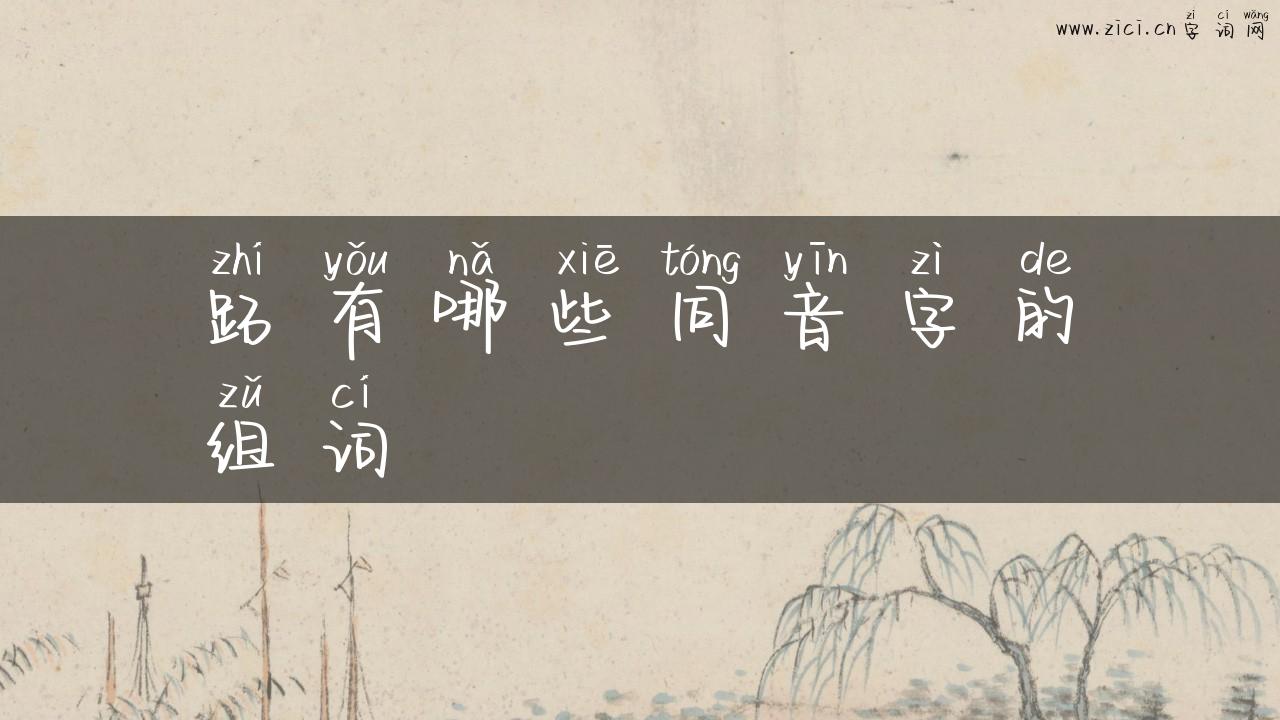 zì cí wǎng
www.zici.cn 字词网
zhí yǒu nǎ xiē tóng yīn zì de
跖有哪些同音字的
zǔ cí
组词